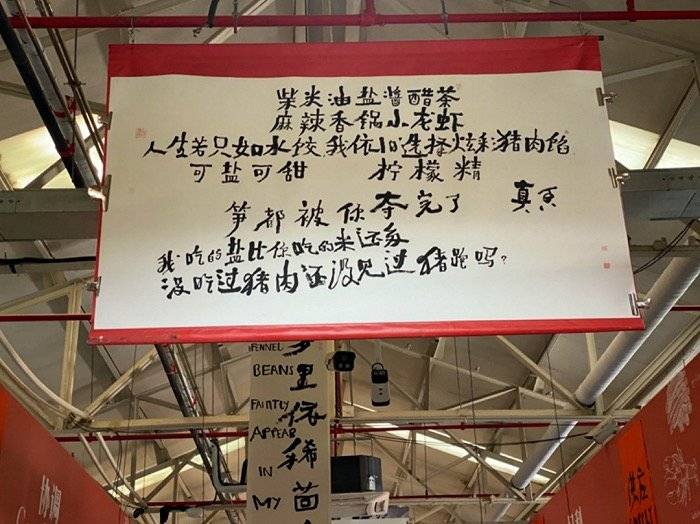 柴米油盐醬醋茶
麻辣香锅小龙虾
人生若只如水饺 我依旧选择炫彩猪肉馅
可盐可甜 柠檬精
笋都被你夺完了 真香
我吃的盐比你吃的米还多
没吃过猪肉还没见过猪跑吗?
FENNEL
BEANS
FAINTLY
APPEAR
IN
MY
里依稀茴
协调
供应